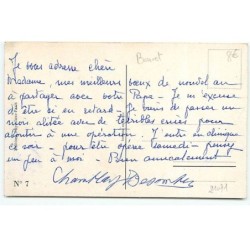 Je vous adresse chère
Madame, mes meilleurs voeux de nouvel an
à partager avec votre Papa - Je m'excuse
d'être si en retard - Je viens de passer un
mois alitée avec de terribles crises pour
aboutir à une opération. J'entre en clinique
ce soir - pour être opérée samedi - pensez
un peu à moi - Bien amicalement
Nº 7